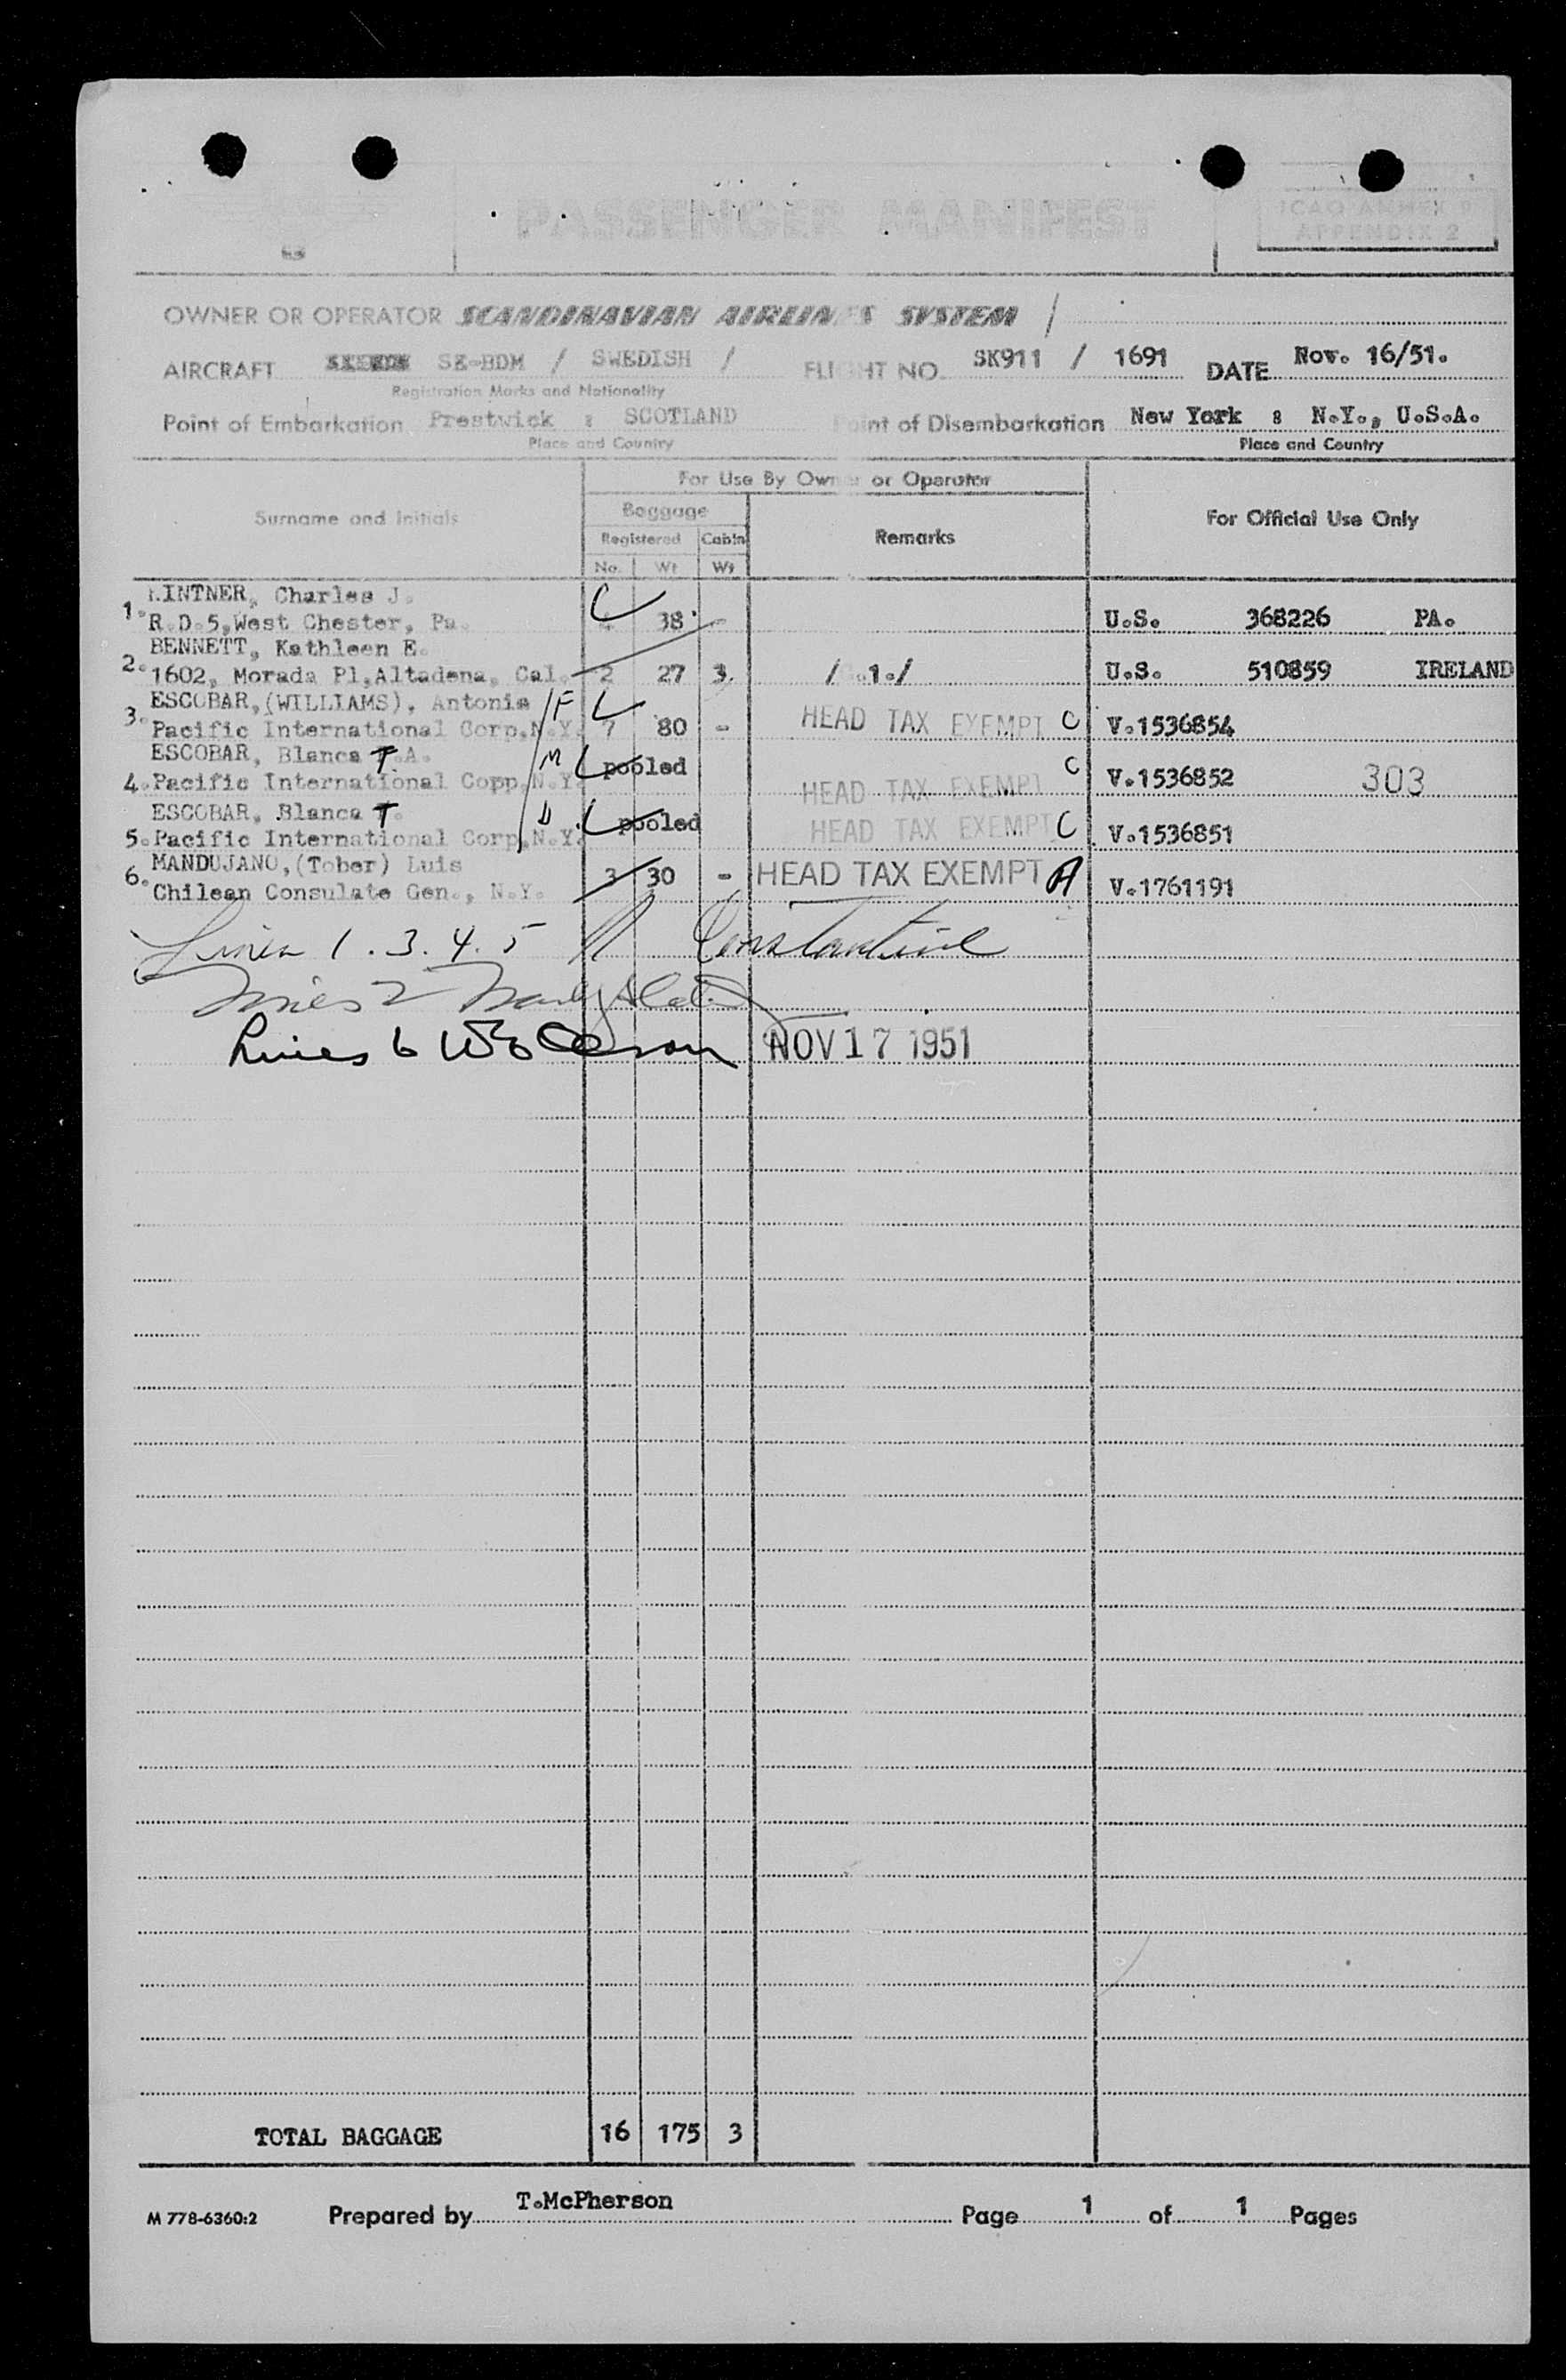 PASSENGER MANIFEST
ICAO ANNEX 9
APPENDIX 2
OWNER OR OPERATOR SCANDINAVIAN AIRLINES SYSTEM /
AIRCRAFT SE-BDM / SWEDISH / FLIGHT NO. SK911 / 1691 DATE Nov. 16/51.
Registration Marks and Nationality
Point of Embarkation Prestwick : SCOTLAND Point of Disembarkation New York : N.Y., U.S.A.
Place and Country Place and Country
For Use By Owner or Operator
Surname and Initials Baggage Remarks For Official Use Only
Registered Cabin
No. Wt Wt
Charles J.
1. R.D.5,West Chester, Pa. 4 38 - U.S. 368226 PA.
BENNETT, Kathleen E.
2. 1602, Morada Pl,Altadena, Cal. 2 27 3. / .1./ U.S. 510859 IRELAND
ESCOBAR,(WILLIAMS), Antonio F
3. Pacific International Corp.N.Y. 7 80 - HEAD TAX EXEMPT C V.1536854
ESCOBAR, Blanca T.A. M
4. Pacific International Copp.N.Y. pooled HEAD TAX EXEMPT C V.1536852 303
ESCOBAR, Blanca T. D
5. Pacific International Corp.N.Y. pooled HEAD TAX EXEMPT C V.1536851
MANDUJANO,(Tober) Luis
6. Chilean Consulate Gen., N.Y. 3 30 - HEAD TAX EXEMPT A V.1761191
Lines 1. 3. 4. 5 Constantine
Lines 2
Lines 6 NOV 17 1951
TOTAL BAGGAGE 16 175 3
M 778-6360:2 Prepared by T.McPherson Page 1 of 1 Pages